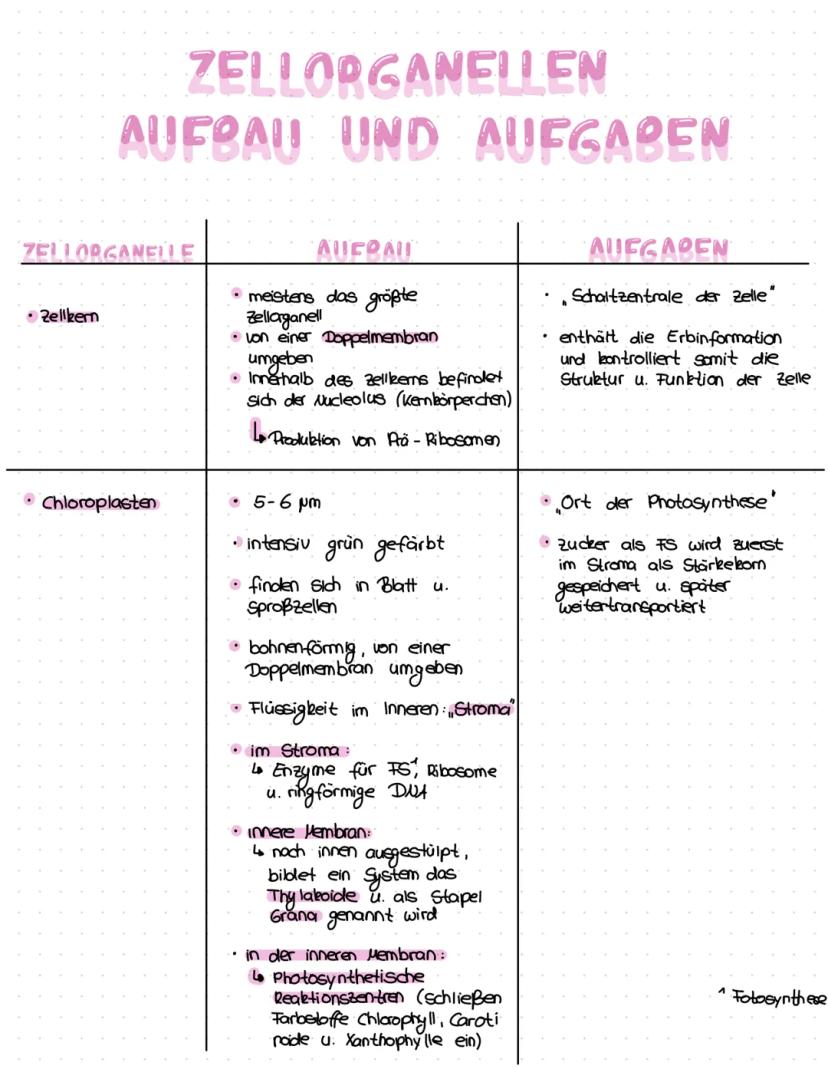 ZELLORGANELLEN
AUFBAU UND AUFGABEN
ZELLORGANELLE
AUFBAU
AUFGABEN
• Zellkern
• meistens das größte
Zellorganell
• von einer Doppelmembran
umgeben
• Innerhalb des Zellkerns befindet
sich der Nucleolus (Kernkörperchen)
↳ Produktion von Prä-Ribosomen
• „Schaltzentrale der Zelle"
• enthält die Erbinformation
und kontrolliert somit die
Struktur u. Funktion der Zelle
• Chloroplasten
• 5-6 µm
• intensiv grün gefärbt
• finden sich in Blatt u.
Sproßzellen
• bohnenförmig, von einer
Doppelmembran umgeben
• Flüssigkeit im Inneren: „Stroma"
• im Stroma:
↳ Enzyme für FS¹, Ribosome
u. ringförmige DNA
• innere Membran:
↳ nach innen ausgestülpt,
bildet ein System das
Thylakoide u. als Stapel
Grana genannt wird
• in der inneren Membran:
↳ Photosynthetische
Reaktionszentren (schließen
Farbstoffe Chlorophyll, Caroti
noide u. Xanthophylle ein)
• „Ort der Photosynthese"
• Zucker als FS wird zuerst
im Stroma als Stärkekorn
gespeichert u. später
weitertransportiert
¹ Fotosynthese